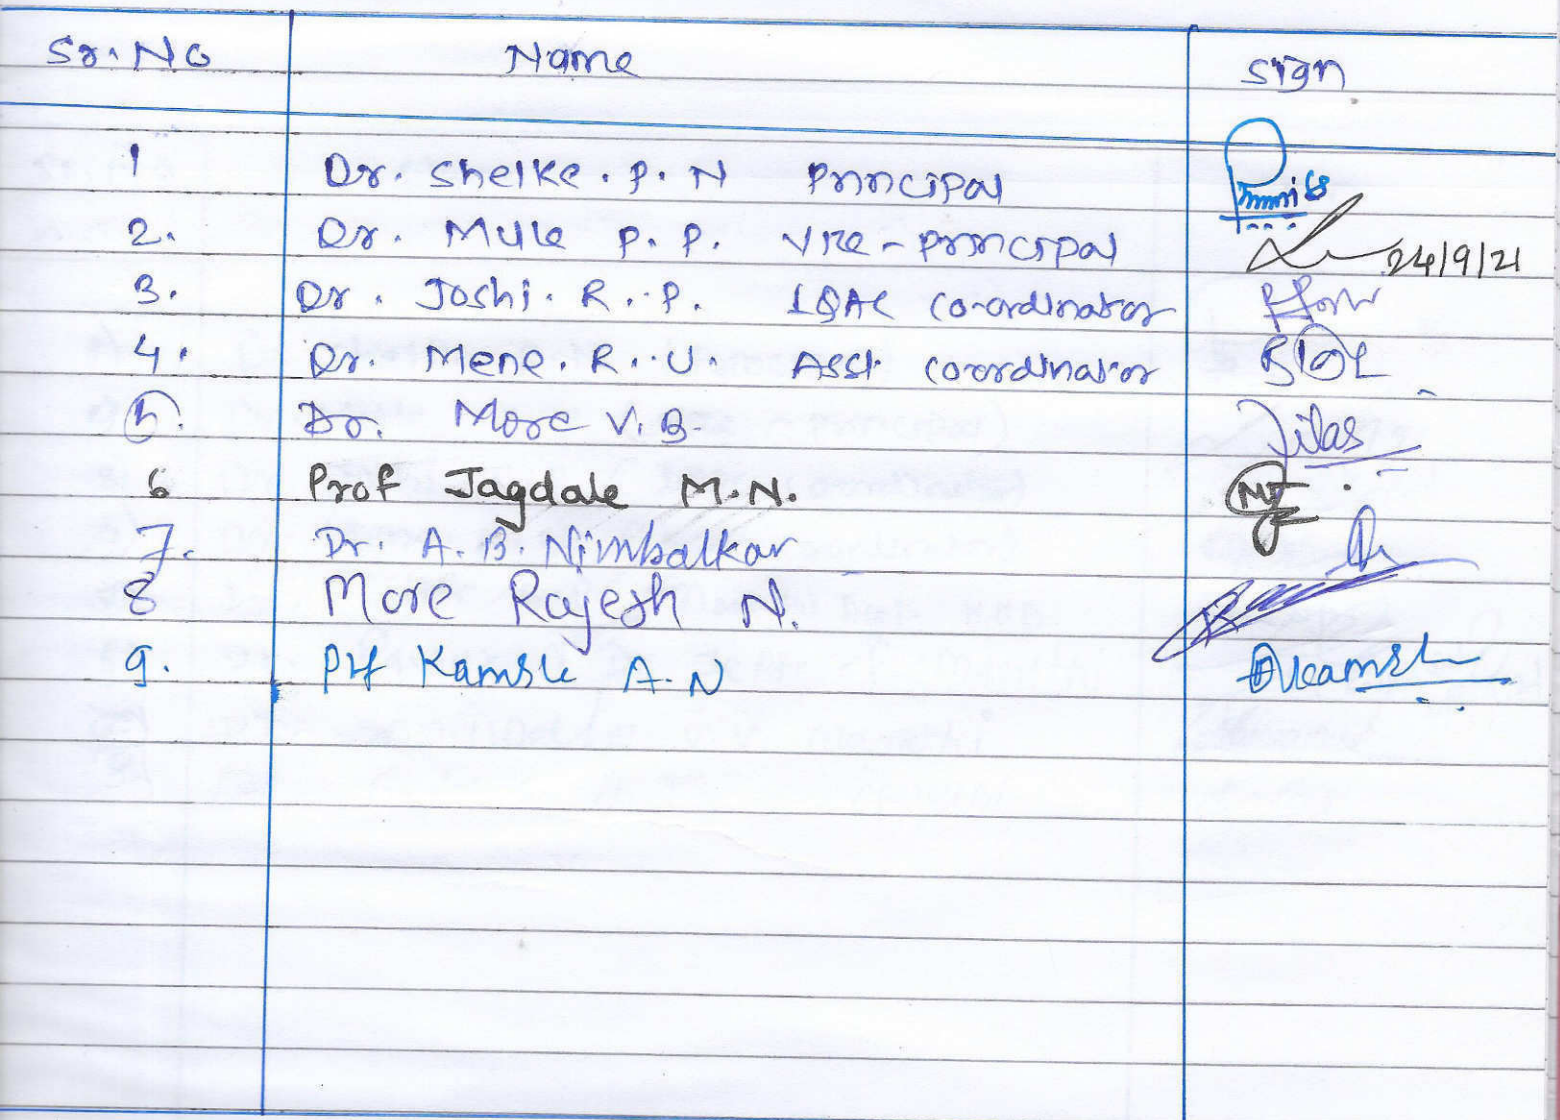 Sr. No Name Sign
1 Dr. Shelke. P. N Principal
2. Dr. Mule P. P. Vice-principal 24/9/21
3. Dr. Joshi. R. P. IQAC Co-ordinator
4. Dr. Mene. R. U. Asst. Coordinator
5. Dr. More V. B. Vilas
6 Prof Jagdale M. N.
7. Dr. A. B. Nimbalkar
8 More Rajesh N.
9. Kamble A. N